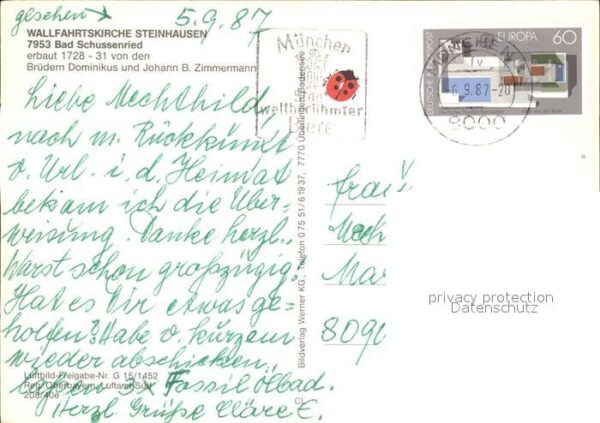 gesehen → 5.9.87
WALLFAHRTSKIRCHE STEINHAUSEN
7953 Bad Schussenried
erbaut 1728 - 31 von den
Brüdern Dominikus und Johann B. Zimmermann
Liebe Mechthild
nach m. Rückkunft
v. Url. i. d. Heimat
bekam ich die Über-
weisung. Danke herzl.,
Warst schon großzügig!
Hat es Dir etwas ge-
holfen? Habe v. kurzem
wieder abschicken,
Luftbild-Freigabe-Nr. G 15/1452
Reg. Oberbayern, Luftamt Süd
208/40e
5x Fossil Ölbad.
Herzl Grüße Cläre E.
Bildverlag Werner KG., Telefon 0 75 51/6 19 37, 7770 Überlingen/Bodensee
CL
München
weltberühmter
Tiere
DEUTSCHE BUNDESPOST
EUROPA
60
MÜNCHEN
fv
6.9.87-20
8000
Frau
Mech
Mar
8090
privacy protection
Datenschutz